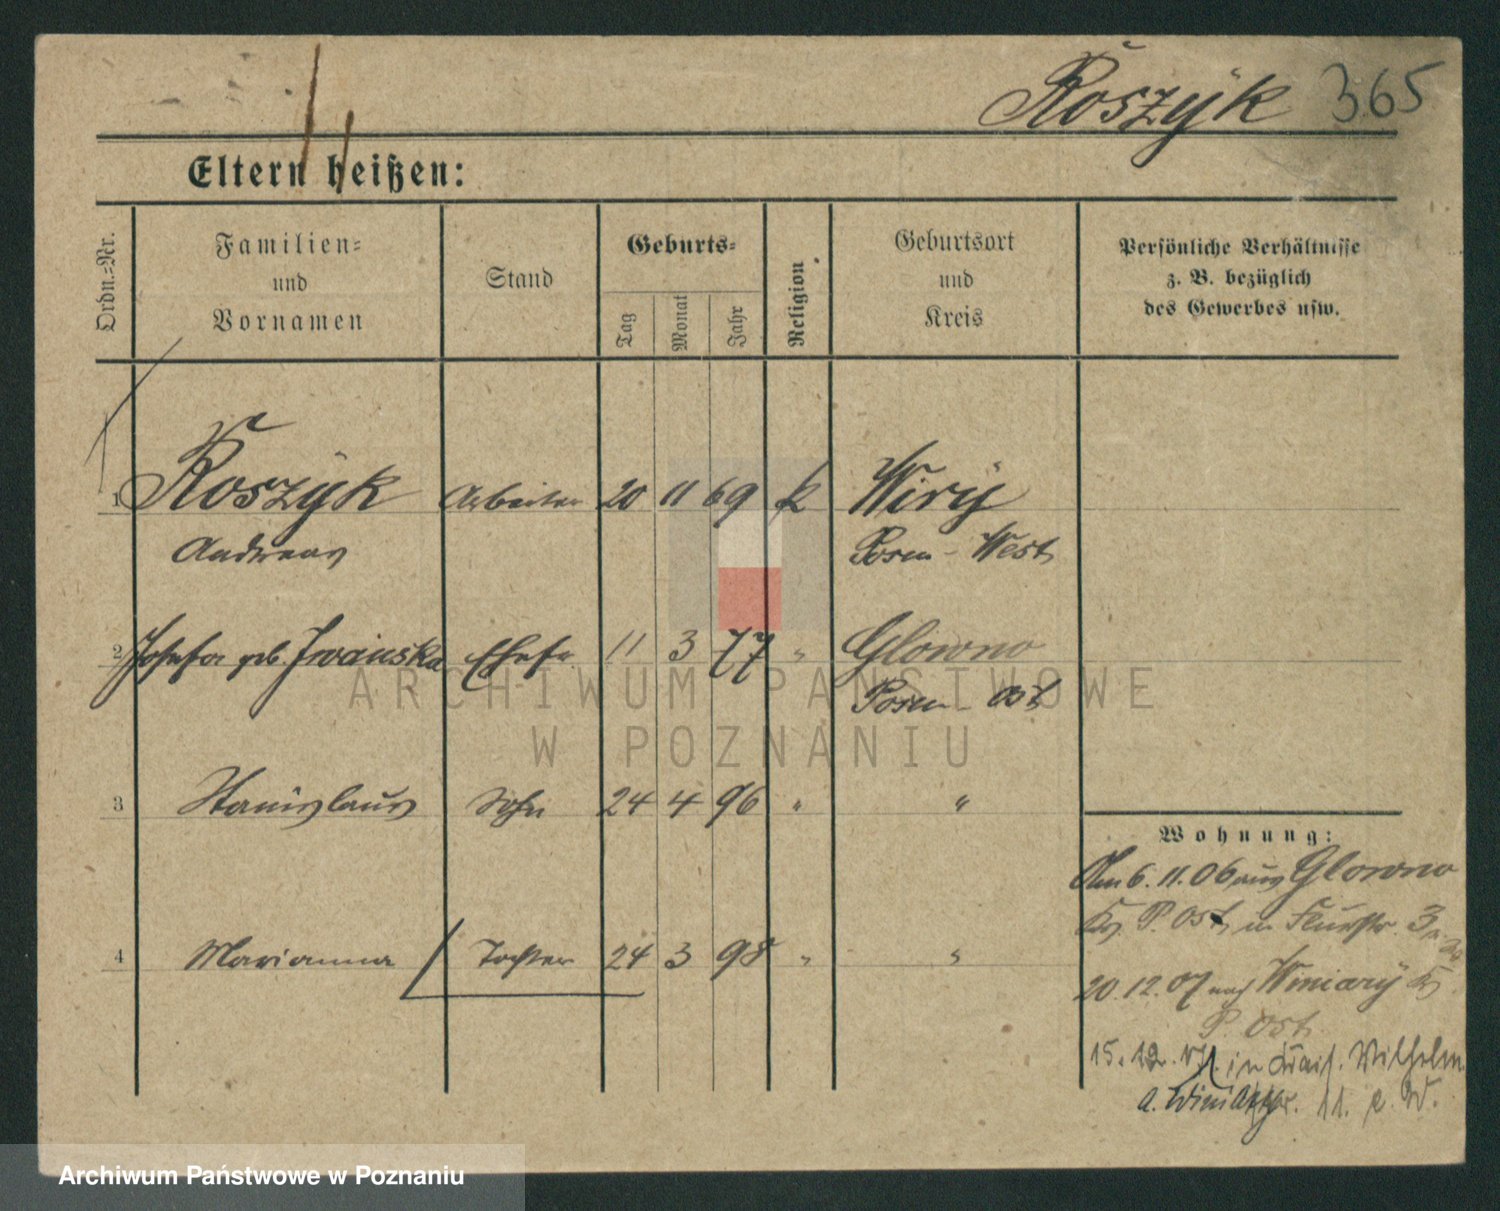 Roszÿk 365
Eltern heißen:
Ordn.=Nr.
Familien=
und
Vornamen
Stand
Geburts=
Tag
Monat
Jahr
Religion
Geburtsort
und
Kreis
Persönliche Verhältnisse
z. B. bezüglich
des Gewerbes usw.
1 Roszÿk Arbeiter 20 11 69 k Wirÿ
Andreas Posen - West
2 Josefa geb. Iwaińska Ehefr. 11 3 77 " Glowno
Posen - Ost
3 Stanislaus Sohn 24 4 96 " "
4 Marianna Tochter 24 3 98 " "
Wohnung:
Am 6. 11. 06 aus Glowno
Kr. P. Ost, in 3
20. 12. 07 nach Winiarÿ Kr
P. Ost
15. 12. in Kais. Wilhelm
a. 11. e. W.
ARCHIWUM PAŃSTWOWE
W POZNANIU
Archiwum Państwowe w Poznaniu